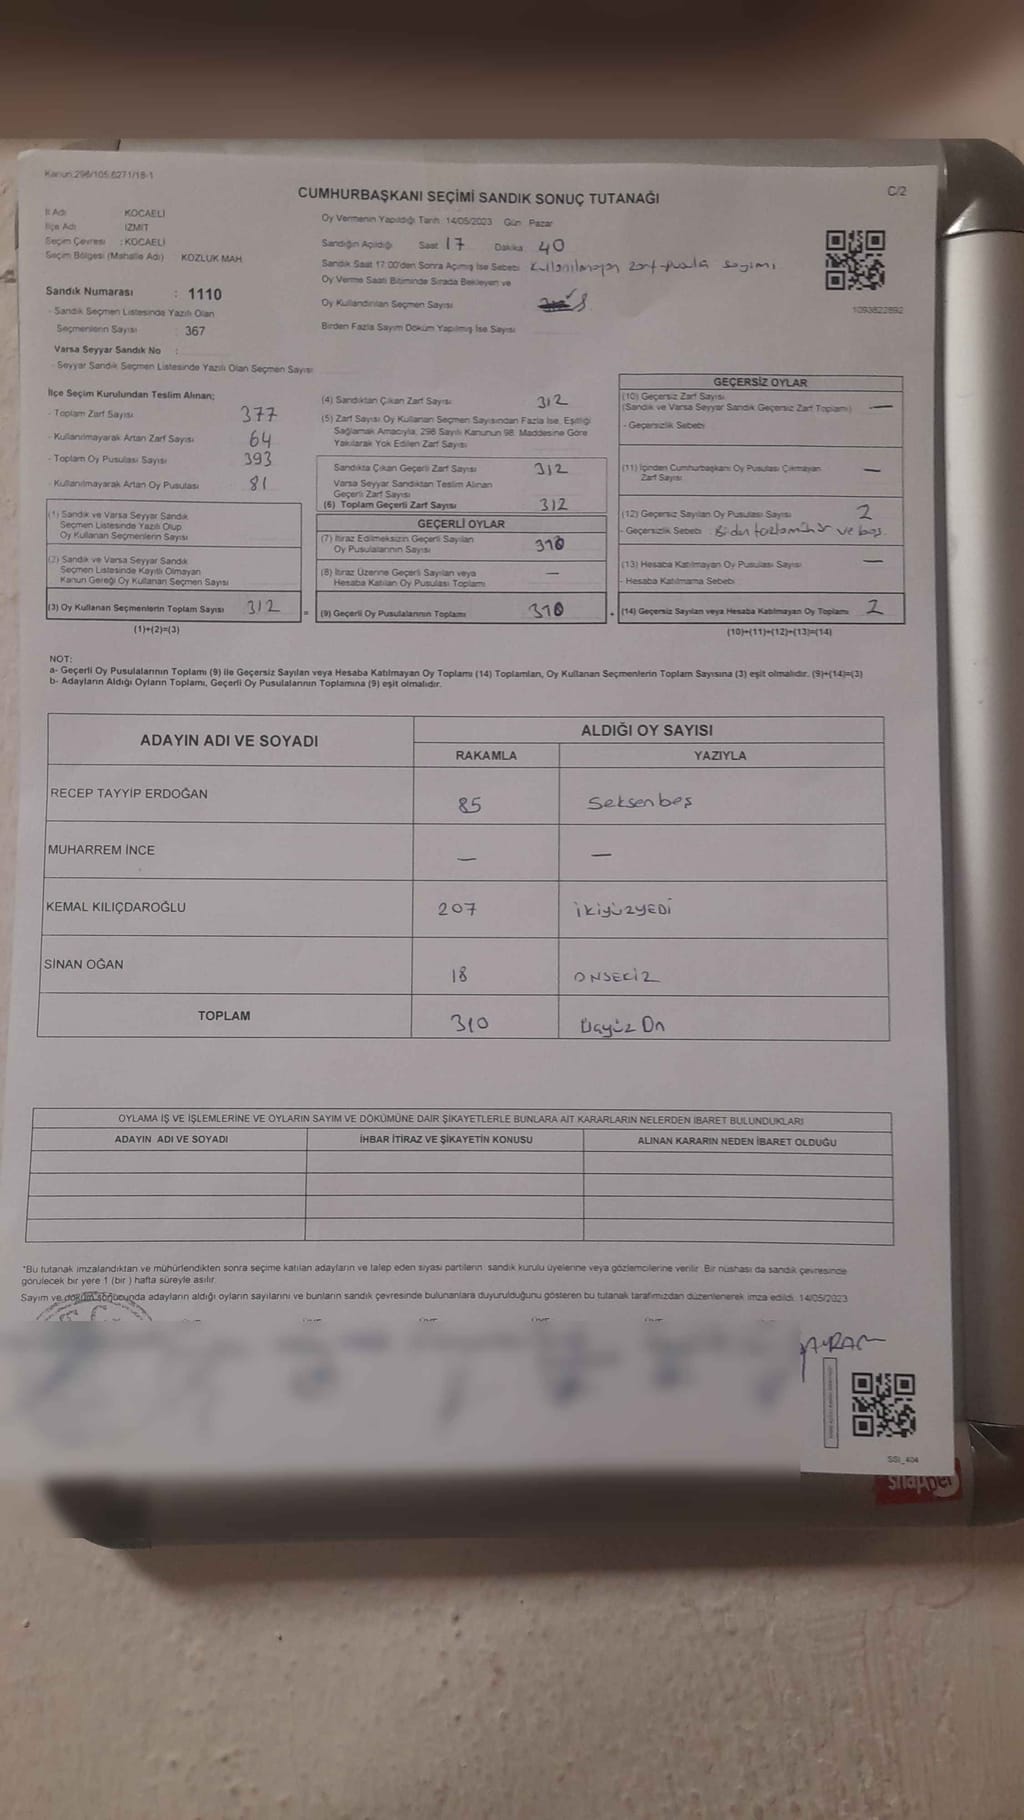 Kanun:298/105,6271/18-1
CUMHURBAŞKANI SEÇİMİ SANDIK SONUÇ TUTANAĞI
C/2
İl Adı KOCAELİ
İlçe Adı İZMİT
Seçim Çevresi : KOCAELİ
Seçim Bölgesi (Mahalle Adı) KOZLUK MAH
Sandık Numarası : 1110
- Sandık Seçmen Listesinde Yazılı Olan
Seçmenlerin Sayısı : 367
Varsa Seyyar Sandık No :
- Seyyar Sandık Seçmen Listesinde Yazılı Olan Seçmen Sayısı:
Oy Vermenin Yapıldığı Tarih 14/05/2023 Gün Pazar
Sandığın Açıldığı Saat 17 Dakika 40
Sandık Saat 17:00'den Sonra Açılmış İse Sebebi kullanılmayan zarf-pusula sayımı
Oy Verme Saati Bitiminde Sırada Bekleyen ve
Oy Kullandırılan Seçmen Sayısı
Birden Fazla Sayım Döküm Yapılmış İse Sayısı
1093822892
İlçe Seçim Kurulundan Teslim Alınan;
- Toplam Zarf Sayısı 377
- Kullanılmayarak Artan Zarf Sayısı 64
- Toplam Oy Pusulası Sayısı 393
- Kullanılmayarak Artan Oy Pusulası 81
(1) Sandık ve Varsa Seyyar Sandık
Seçmen Listesinde Yazılı Olup
Oy Kullanan Seçmenlerin Sayısı
(2) Sandık ve Varsa Seyyar Sandık
Seçmen Listesinde Kayıtlı Olmayan
Kanun Gereği Oy Kullanan Seçmen Sayısı
(3) Oy Kullanan Seçmenlerin Toplam Sayısı 312
(1)+(2)=(3)
=
(4) Sandıktan Çıkan Zarf Sayısı 312
(5) Zarf Sayısı Oy Kullanan Seçmen Sayısından Fazla İse, Eşitliği
Sağlamak Amacıyla, 298 Sayılı Kanunun 98. Maddesine Göre
Yakılarak Yok Edilen Zarf Sayısı
Sandıkta Çıkan Geçerli Zarf Sayısı 312
Varsa Seyyar Sandıktan Teslim Alınan
Geçerli Zarf Sayısı
(6) Toplam Geçerli Zarf Sayısı 312
GEÇERLİ OYLAR
(7) İtiraz Edilmeksizin Geçerli Sayılan
Oy Pusulalarının Sayısı 310
(8) İtiraz Üzerine Geçerli Sayılan veya
Hesaba Katılan Oy Pusulası Toplamı —
(9) Geçerli Oy Pusulalarının Toplamı 310
+
GEÇERSİZ OYLAR
(10) Geçersiz Zarf Sayısı
(Sandık ve Varsa Seyyar Sandık Geçersiz Zarf Toplamı) —
- Geçersizlik Sebebi
(11) İçinden Cumhurbaşkanı Oy Pusulası Çıkmayan
Zarf Sayısı —
(12) Geçersiz Sayılan Oy Pusulası Sayısı 2
- Geçersizlik Sebebi : Birden fazla mühür ve boş
(13) Hesaba Katılmayan Oy Pusulası Sayısı —
- Hesaba Katılmama Sebebi
(14) Geçersiz Sayılan veya Hesaba Katılmayan Oy Toplamı 2
(10)+(11)+(12)+(13)=(14)
NOT:
a- Geçerli Oy Pusulalarının Toplamı (9) ile Geçersiz Sayılan veya Hesaba Katılmayan Oy Toplamı (14) Toplamları, Oy Kullanan Seçmenlerin Toplam Sayısına (3) eşit olmalıdır. (9)+(14)=(3)
b- Adayların Aldığı Oyların Toplamı, Geçerli Oy Pusulalarının Toplamına (9) eşit olmalıdır.
ADAYIN ADI VE SOYADI
ALDIĞI OY SAYISI
RAKAMLA YAZIYLA
RECEP TAYYİP ERDOĞAN 85 Seksenbeş
MUHARREM İNCE — —
KEMAL KILIÇDAROĞLU 207 İKİYÜZYEDİ
SİNAN OĞAN 18 ONSEKİZ
TOPLAM 310 Üçyüz On
OYLAMA İŞ VE İŞLEMLERİNE VE OYLARIN SAYIM VE DÖKÜMÜNE DAİR ŞİKAYETLERLE BUNLARA AİT KARARLARIN NELERDEN İBARET BULUNDUKLARI
ADAYIN ADI VE SOYADI İHBAR İTİRAZ VE ŞİKAYETİN KONUSU ALINAN KARARIN NEDEN İBARET OLDUĞU
*Bu tutanak imzalandıktan ve mühürlendikten sonra seçime katılan adayların ve talep eden siyasi partilerin sandık kurulu üyelerine veya gözlemcilerine verilir. Bir nüshası da sandık çevresinde
görülecek bir yere 1 (bir ) hafta süreyle asılır.
Sayım ve döküm sonucunda adayların aldığı oyların sayılarını ve bunların sandık çevresinde bulunanlara duyurulduğunu gösteren bu tutanak tarafımızdan düzenlenerek imza edildi. 14/05/2023
SSI_404